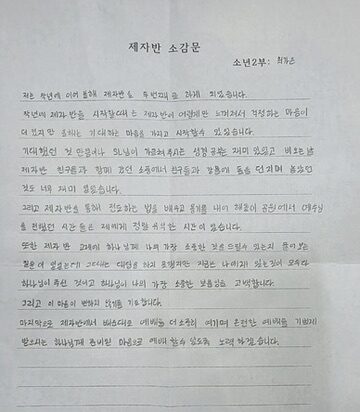 제자반 소감문
소년2부: 최가은
저는 작년에 이어 올해 제자반을 두번째로 하게 되었습니다.
작년에 제자반을 시작할때는 제자반이 어렵게만 느껴져서 걱정하는 마음이
더 컸지만 올해는 기대하는 마음을 가지고 시작할수 있었습니다.
기대했던 것 만큼이나 SL님이 가르쳐주시는 성경공부는 재미있었고
제자반 친구들과 함께 갔던 소풍에서 친구들과 강물에 돌을 던지며 놀았던
것도 너무 재미 있었습니다.
그리고 제자반을 통해 전도하는 법을 배우고 용기를 내어 해운이 공원에서 예수님
을 전했던 시간들은 제게는 정말 유익한 시간이 었습니다.
또한 제자반 교재에 하나님께 나의 가장 소중한 것을 드릴수 있는지 물어보는
질문이 있었는데 그때는 대답을 하지 못했지만 지금은 나에게 있는것이 모두다
하나님이 주신 것이고 하나님이 나의 가장 소중한 보물임을 고백합니다.
그리고 이 마음이 변하지 않기를 기도합니다.
마지막으로 제자반에서 배운대로 예배를 더 소중히 여기며 온전한 예배를 기쁘게
받으시는 하나님께 준비된 마음으로 예배 할수 있도록 노력 하겠습니다.